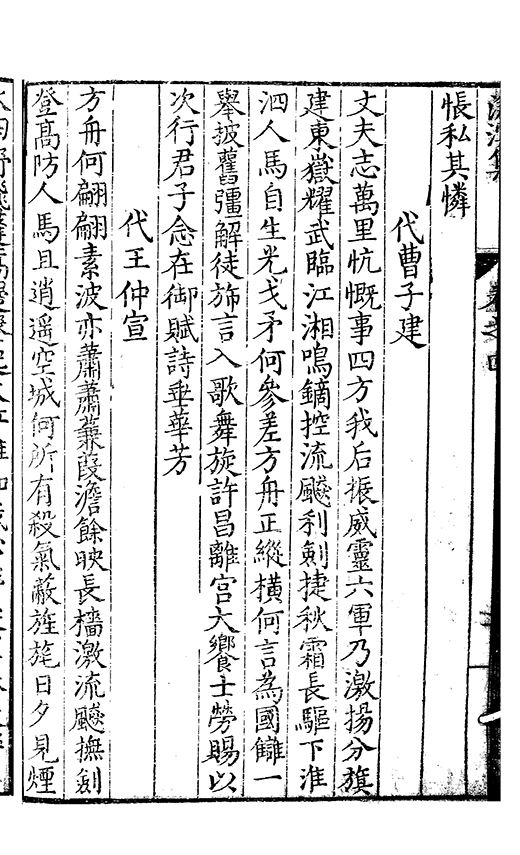 悵私其憐
代曹子建
丈夫志萬里忼慨事四方我后振威靈六軍乃激揚分旗
建東嶽耀武臨江湘鳴鏑控流飈利劍捷秋霜長驅下淮
泗人馬自生光戈矛何參差方舟正縱横何言為國讎一
舉披舊彊解徒斾言入歌舞旋許昌離宫大饗士勞賜以
次行君子念在御賦詩垂華芳
代王仲宣
方舟何翩翩素波亦蕭蕭蒹葭澹餘映長檣激流飈撫劍
登高防人馬且逍遥空城何所有殺氣蔽旌旄日夕見煙